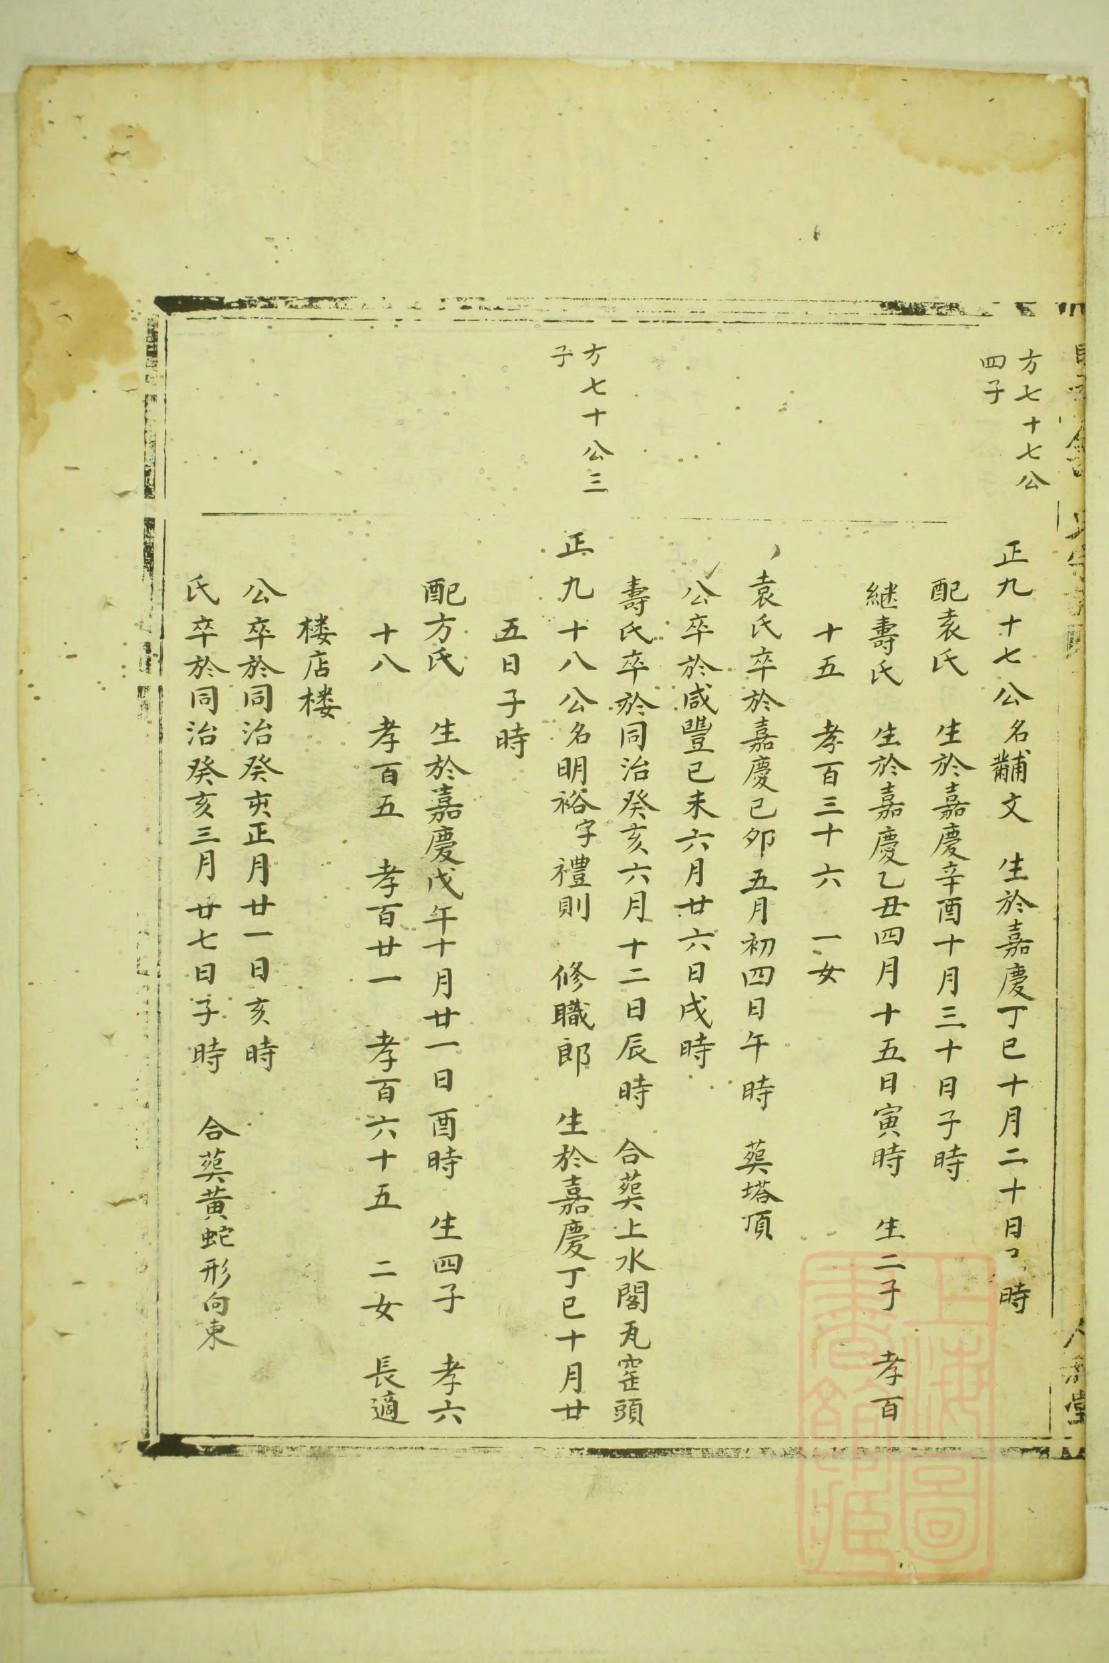 方七十七公
四子
正九十七公名黼文 生於嘉慶丁巳十月二十日 時
配袁氏 生於嘉慶辛酉十月三十日子時
継壽氏 生於嘉慶乙丑四月十五日寅時 生二子 孝百
十五 孝百三十六 一女
袁氏卒於嘉慶己卯五月初四日午時 葬塔頂
公卒於咸豐己未六月廿六日戌時
壽氏卒於同治癸亥六月十二日辰時 合葬上水閣瓦窑頭
方七十公三
子
正九十八公名明裕字禮則 修職郎 生於嘉慶丁巳十月廿
五日子時
配方氏 生於嘉慶戊午十月廿一日酉時 生四子 孝六
十八 孝百五 孝百廿一 孝百六十五 二女 長適
楼店楼
公卒於同治癸亥正月廿一日亥時
氏卒於同治癸亥三月廿七日子時 合葬黃蛇形向東
上海圖
書館藏